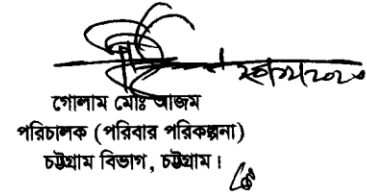 গোলাম মোঃ আজম
পরিচালক (পরিবার পরিকল্পনা)
চট্টগ্রাম বিভাগ, চট্টগ্রাম।